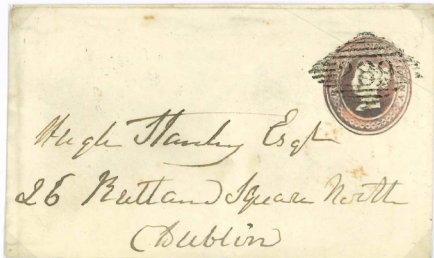 289
Hugh Stanley Esqr
26 Rutland Square North
Dublin